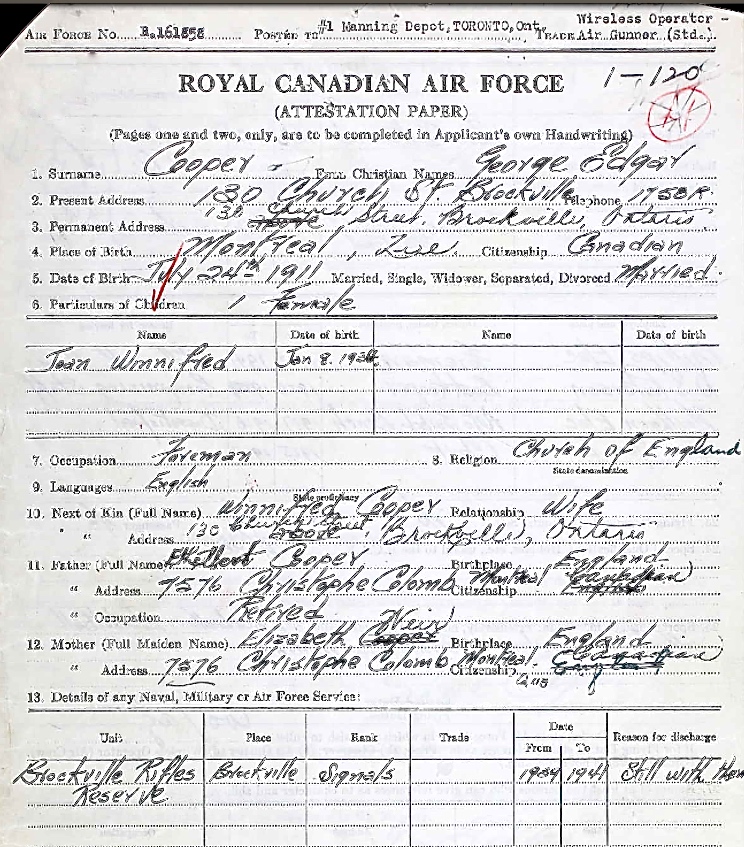 Wireless Operator -
AIR FORCE No. R.161858 POSTED TO #1 Manning Depot, TORONTO, Ont. TRADE Air Gunner (Std.)
ROYAL CANADIAN AIR FORCE 1-120
(ATTESTATION PAPER)
(Pages one and two, only, are to be completed in Applicant's own Handwriting)
1. Surname Cooper - Christian Names George Edgar
2. Present Address 130 Church St. Brockville Telephone 1758R
3. Permanent Address 130 Church Street, Brockville, Ontario.
4. Place of Birth Montreal, Que. Citizenship Canadian
5. Date of Birth July 24th 1911 Married, Single, Widower, Separated, Divorced Married.
6. Particulars of Children 1 Female
Name Date of birth Name Date of birth
Joan Winnifred Jan 8. 
7. Occupation Foreman 8. Religion Church of England
State denomination
9. Languages English
State proficiency
10. Next of Kin (Full Name) Winnifred Cooper Relationship Wife
" Address 130 Church Street, Brockville, Ontario
11. Father (Full Name) Cooper Birthplace England
" Address 7576 Christophe Colomb Montreal Citizenship Canadian
" Occupation Retired
Weir
12. Mother (Full Maiden Name) Elizabeth Cooper Birthplace England
" Address 7576 Christophe Colomb Montreal Citizenship Canadian
Que
13. Details of any Naval, Military or Air Force Service:
Unit Place Rank Trade Date Reason for discharge
From To
Brockville Rifles Brockville Signals 1934 1941 Still with them
Reserve